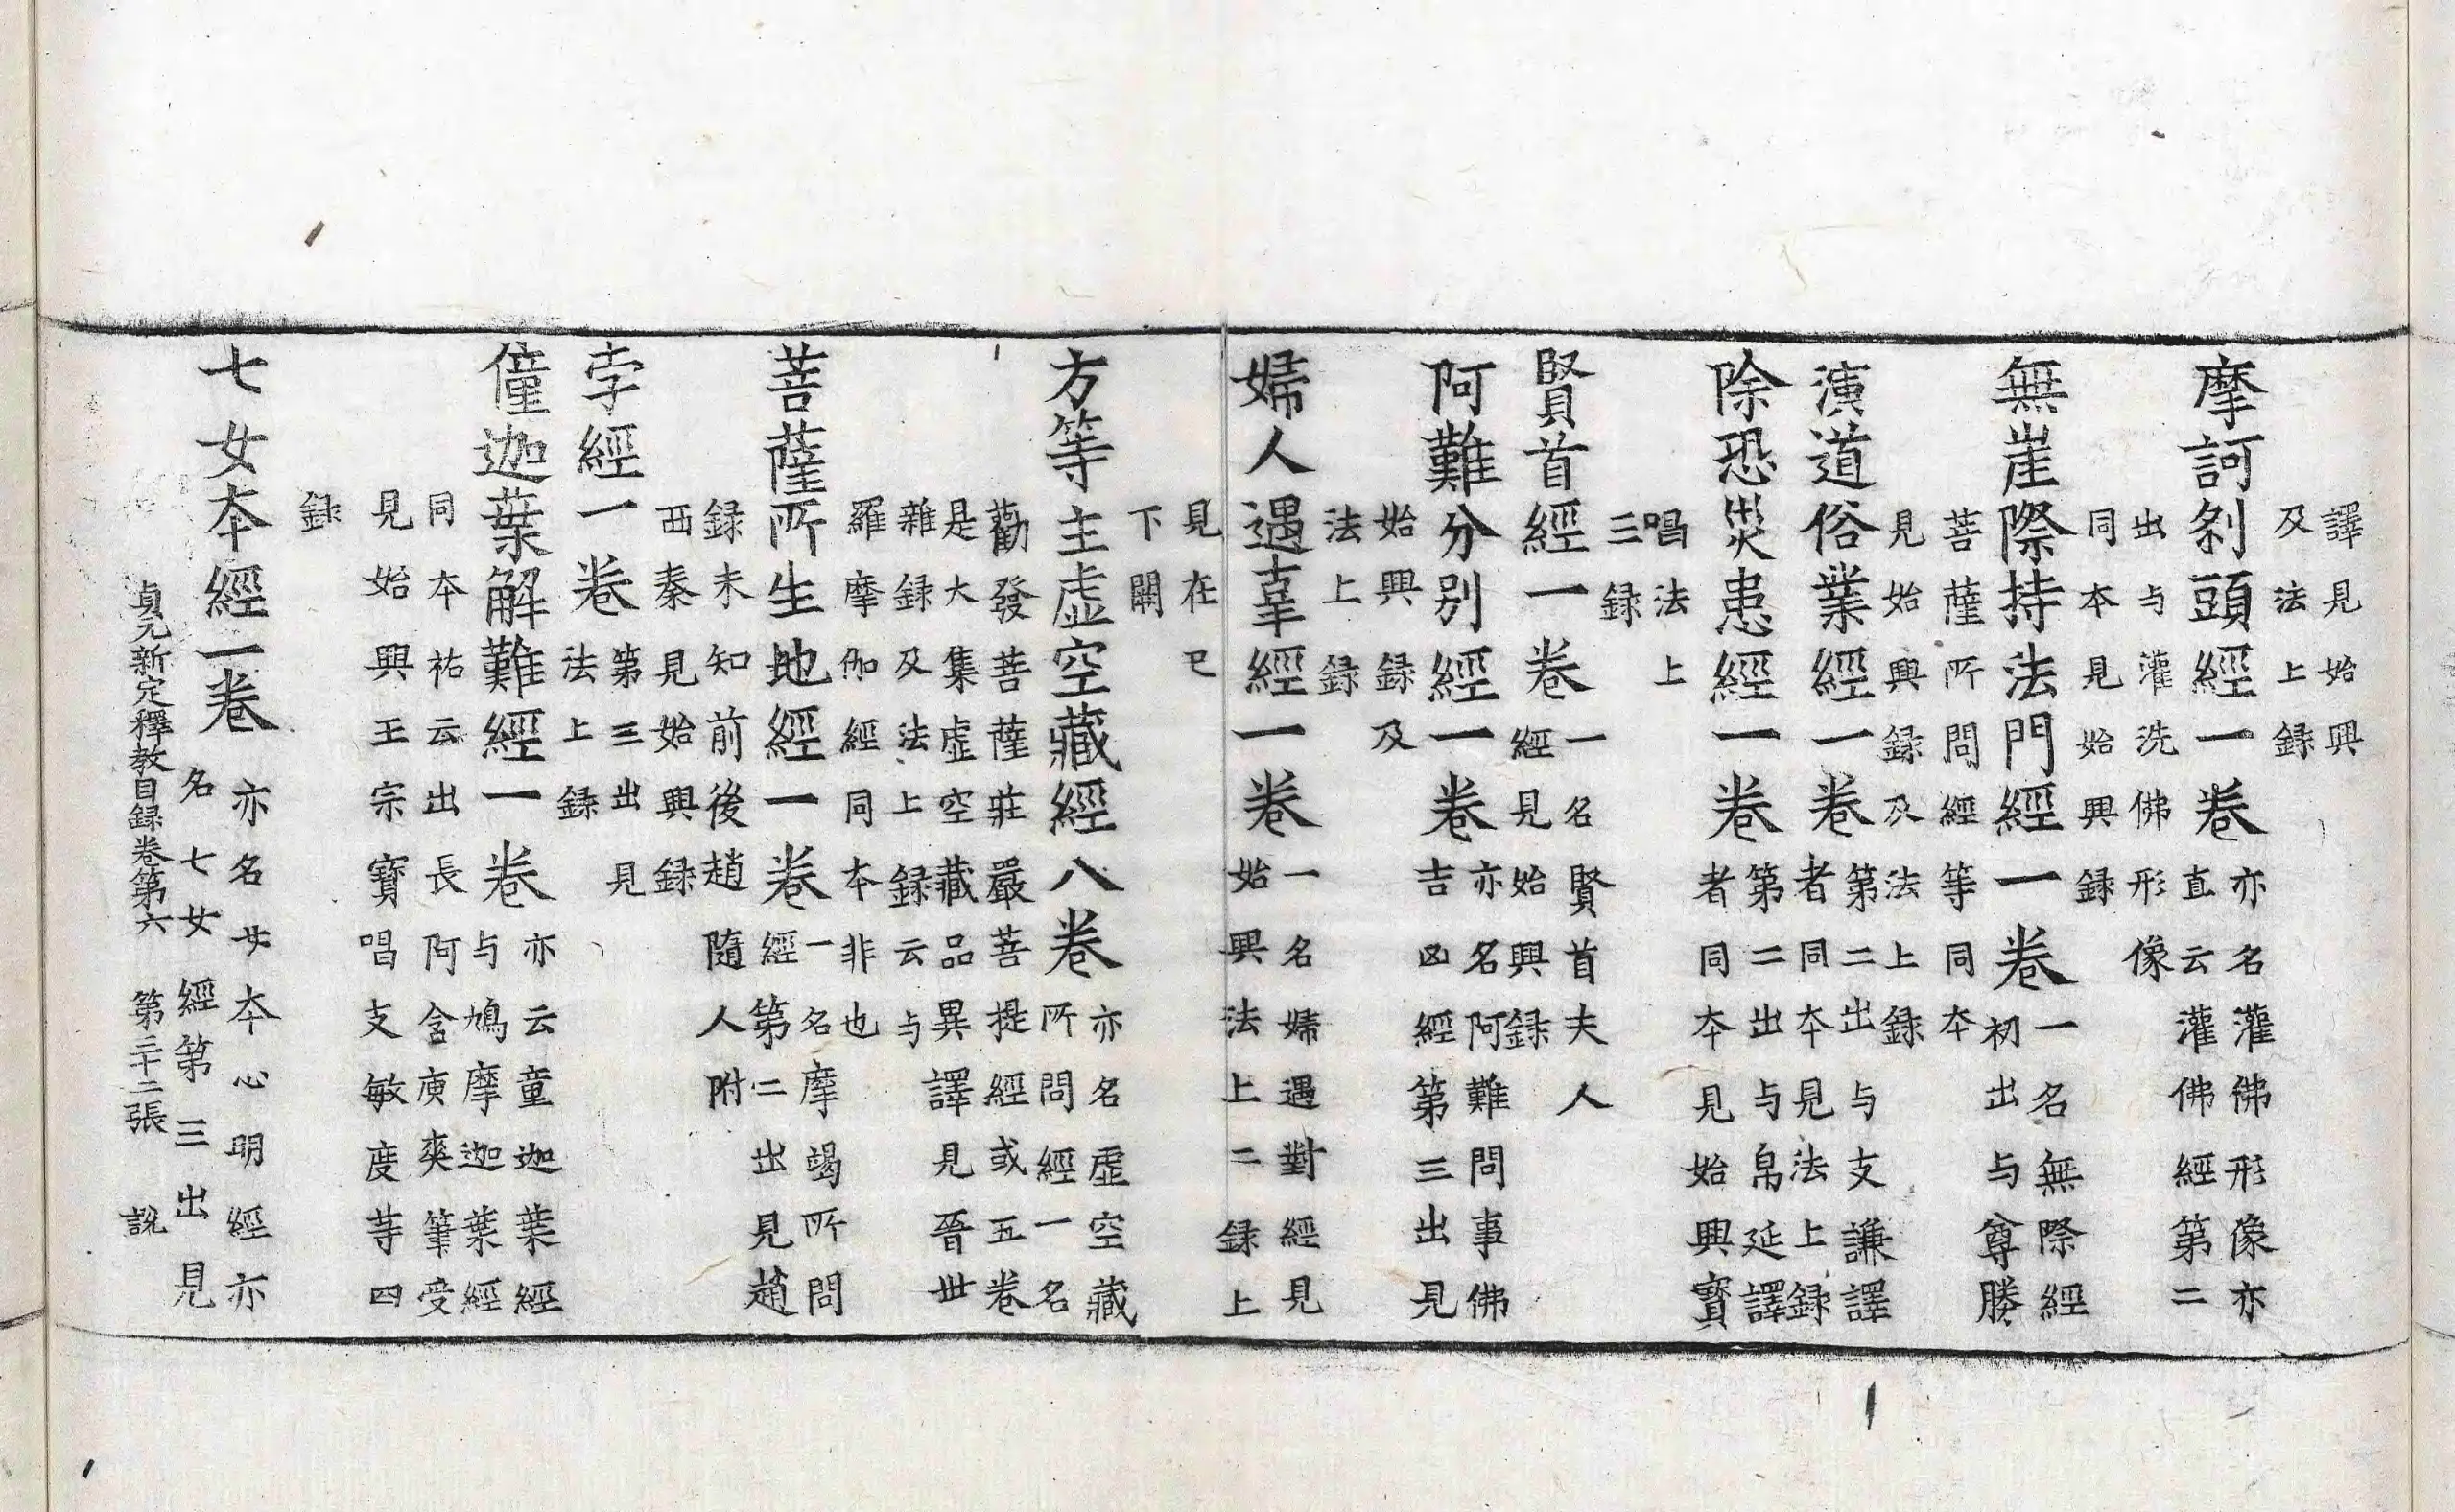 譯見始興
及法上録
摩訶刹頭經一卷
亦名灌佛形像亦
直云灌佛經第二
出与灌洗佛形像
同本見始興録
無崖際持法門經一卷
一名無際經
初出与尊勝
菩薩所問經等同本
見始興録及法上録
演道俗業經一卷
第二出与支謙譯
者同本見法上録
除恐災患經一卷
第二出与帛延譯
者同本見始興寳
唱法上
三録
賢首經一卷
一名賢首夫人
經見始興録
阿難分別經一卷
亦名阿難問事佛
吉凶經第三出見
始興録及
法上録
婦人遇辜經一卷
一名婦遇對經見
始興法上二録上
見在已
下闕
方等主虚空藏經八卷
亦名虚空藏
所問經一名
勸發菩薩莊嚴菩提經或五卷
是大集虚空藏品異譯見晉世
雜録及法上録云与
羅摩伽經同本非也
菩薩所生地經一卷
一名摩竭所問
經第二出見趙
録未知前後趙隨人附
西秦見始興録
孛經一卷
第三出見
法上録
僮迦葉解難經一卷
亦云童迦葉經
与鳩摩迦葉經
同本祐云出長阿含庾爽筆受
見始興王宗寳唱支敏度等四
録
七女本經一卷
亦名女本心明經亦
名七女經第三出見
貞元新定釋教目録卷第六 第二十二張 說